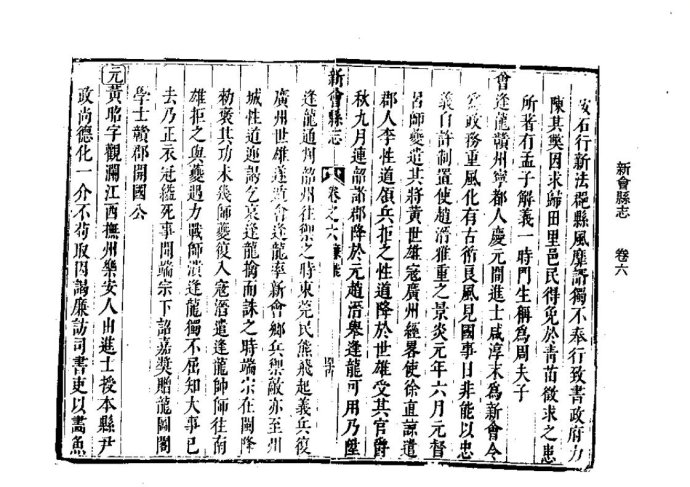 新會縣志 卷六
安石行新法郡縣風靡諝獨不奉行致書政府力
陳其奐因求歸田里邑民得免於青苗徵求之患
所著有孟子解義一時門生稱為周夫子
曾逢龍贛州寧都人慶元間進士咸淳末為新會令
為政務重風化有古循良風見國事日非能以忠
義自許制置使趙溍雅重之景炎元年六月元督
呂師夔遣其將黃世雄寇廣州經畧使徐直諒遣
郡人李性道領兵拒之性道降於世雄受其官爵
秋九月連韶諸郡降於元趙溍舉逢龍可用乃陞
新會縣志 卷之六 廉能
逢龍通判韶州往禦之時東莞民熊飛起義兵復
廣州世雄遂遁會逢龍率新會鄉兵禦敵亦至州
城性道迎謁乞哀逢龍擒而誅之時端宗在閩降
勑褒其功未幾師夔復入寇溍遣逢龍帥師往南
雄拒之與夔遇力戰師潰逢龍獨不屈知大事已
去乃正衣冠縊死事聞端宗下詔嘉奬贈龍圖閣
學士贛郡開國公
元黃昭字觀瀾江西撫州樂安人由進士授本縣尹
政尚德化一介不苟取因謁廉訪司書吏以畵魚